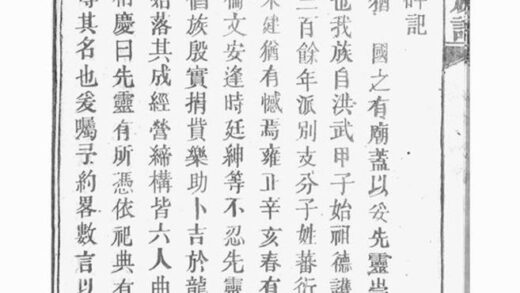 族譜
碑記
猶 國之有廟蓋以妥先靈崇
也我族自洪武甲子始祖德
三百餘年派別支分子姓蕃衍
未建猶有憾焉雍正辛亥春有
倫文安逢時廷紳等不忍先靈
猶族殷實捐貲樂助卜吉於龍
始落其成經營締構皆六人曲
相慶曰先靈有所憑依祀典有
尋其名也爰囑予約畧數言以